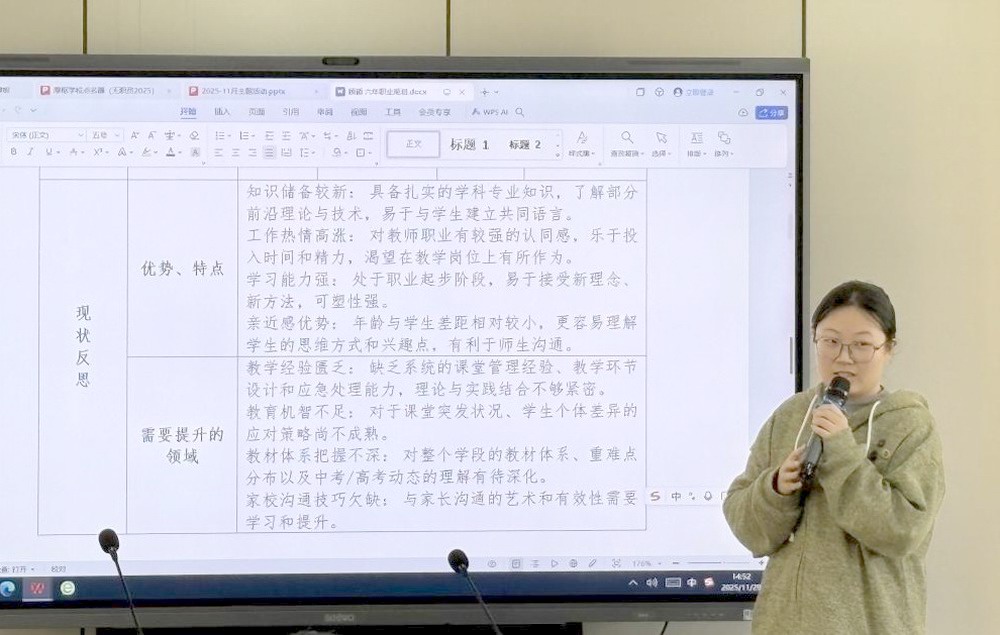 2025-11月主题活动.pptx
六年职业规划.docx
立即登录
开始 插入 页面 引用 审阅 视图 工具 会员专享 WPS AI
分享
宋体 (正文) 五号
正文 标题 1 标题 2
样式集 查找替换 选择 排版 排列
现状反思
优势、特点
知识储备较新： 具备扎实的学科专业知识，了解部分
前沿理论与技术，易于与学生建立共同语言。
工作热情高涨： 对教师职业有较强的认同感，乐于投
入时间和精力，渴望在教学岗位上有所作为。
学习能力强： 处于职业起步阶段，易于接受新理念、
新方法，可塑性强。
亲近感优势： 年龄与学生差距相对较小，更容易理解
学生的思维方式和兴趣点，有利于师生沟通。
需要提升的
领域
教学经验匮乏： 缺乏系统的课堂管理经验、教学环节
设计和应急处理能力，理论与实践结合不够紧密。
教育机智不足： 对于课堂突发状况、学生个体差异的
应对策略尚不成熟。
教材体系把握不深： 对整个学段的教材体系、重难点
分布以及中考/高考动态的理解有待深化。
家校沟通技巧欠缺： 与家长沟通的艺术和有效性需要
学习和提升。
中
校对
176%
中
14:52